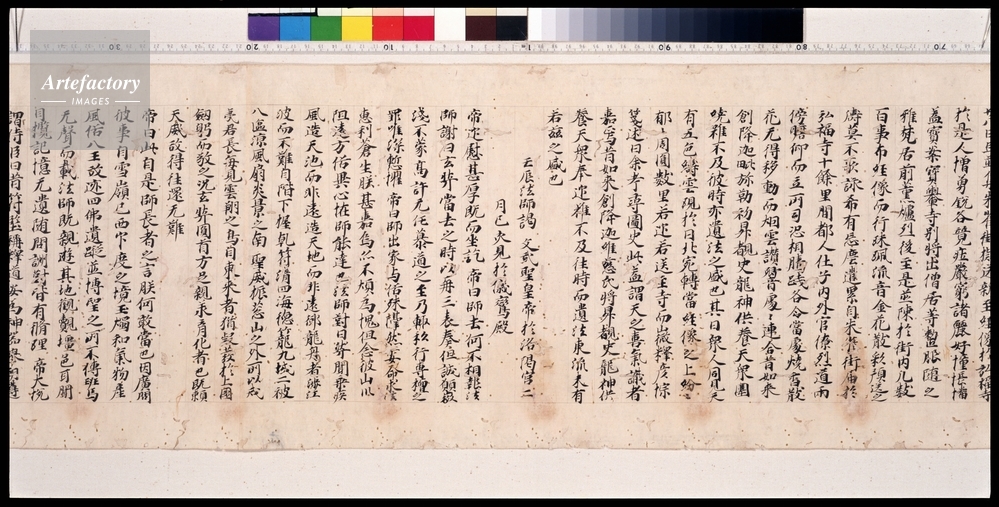 於是人增勇銳各競莊嚴窮諸麗好幢帳幡
蓋寶案寶轝寺別將出僧尼等整服隨之
雅梵居前薰爐列後至是並陳於街內凡數
百事布經像而行珠珮流音金花散彩預送之
儔莫不歌詠希有忘塵遣累自朱雀街由於
弘福寺十餘里間都人仕子內外官僚列道兩
傍瞻仰而立所司恐相騰踐各令當處燒香散
花无得移動而烟雲讚響處處連合昔如來
創降迦毗弥勒初昇覩史龍神供養天衆圍
繞雖不及彼時亦遺法之盛也其日衆人同見天
有五色綺雲現於日北宛轉當經像之上紛紛
郁郁周圓數里若迎若送至寺而微釋彥悰
箋述曰余考尋圖史此蓋謂天之喜氣識者
嘉焉昔如來創降迦維慈氏將昇覩史龍神供
養天衆奉迎雖不及往時而遺法東流未有
若茲之盛也
壬辰法師謁文武聖皇帝於洛陽宮二
月己亥見於儀鸞殿
帝迎慰甚厚既而坐訖帝曰師去何不相報法
師謝曰玄奘當去之時以再三表奏但誠願微
淺不蒙高許无任慕道之至乃輒私行專擅之
罪唯深慙懼帝曰師出家与俗殊隔然委命求法
惠利蒼生朕甚嘉焉亦不煩為愧但念彼山川
阻遠方俗異心怪師能達也法師對曰奘聞乘疾
風造天池而非遠造天地而非遠御龍舟者涉江
波而不難自陛下握乾符清四海德籠九域仁被
八區淳風扇炎景之南聖威振葱山之外所以戎
夷君長每見雲翔之鳥自東來者猶疑發於上國
斂躬而敬之況玄奘圓首方足親承育化者也既賴
天威故得往還无難
帝曰此自是師長者之言朕何敢當也因廣問
彼事自雪嶺已西印度之境玉燭和氣物產
風俗八王故迹四佛遺蹤並博望之所不傳班馬
无聲而載法師既親遊其地觀覿壃邑耳聞
目攬記憶无遺隨問詶對皆有條理帝大悅
謂侍臣曰昔符堅稱釋道安為神器舉朝尊
Artefactory
IMAGES
30
20
10
1
90
80
70